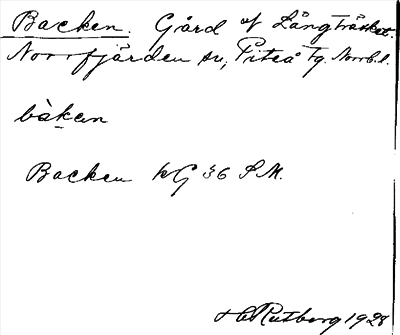 Backen. Gård af Långträsket.
Norrfjärden sn, Piteå tg. Norrb. l.
bàken
Backen kG 36 S.M.
H Rutberg 1928